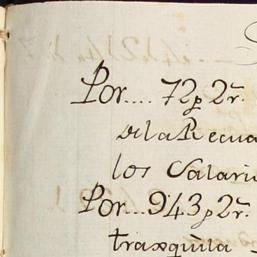 Por.... 72p 2r.
dela Recua
los Salari
Por...943p 2r.
traxquila